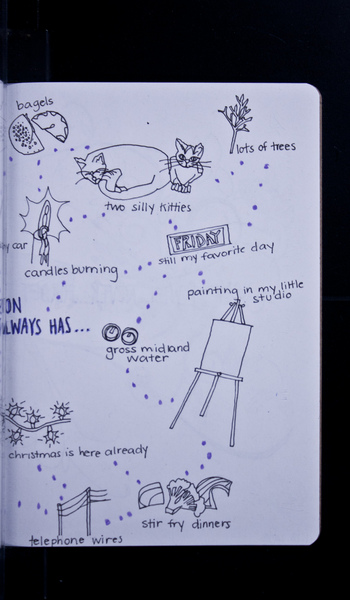 bagels
lots of trees
two silly kitties
car
FRIDAY
still my favorite day
candles burning
painting in my little
studio
ON
ALWAYS HAS...
gross midland
water
christmas is here already
stir fry dinners
telephone wires